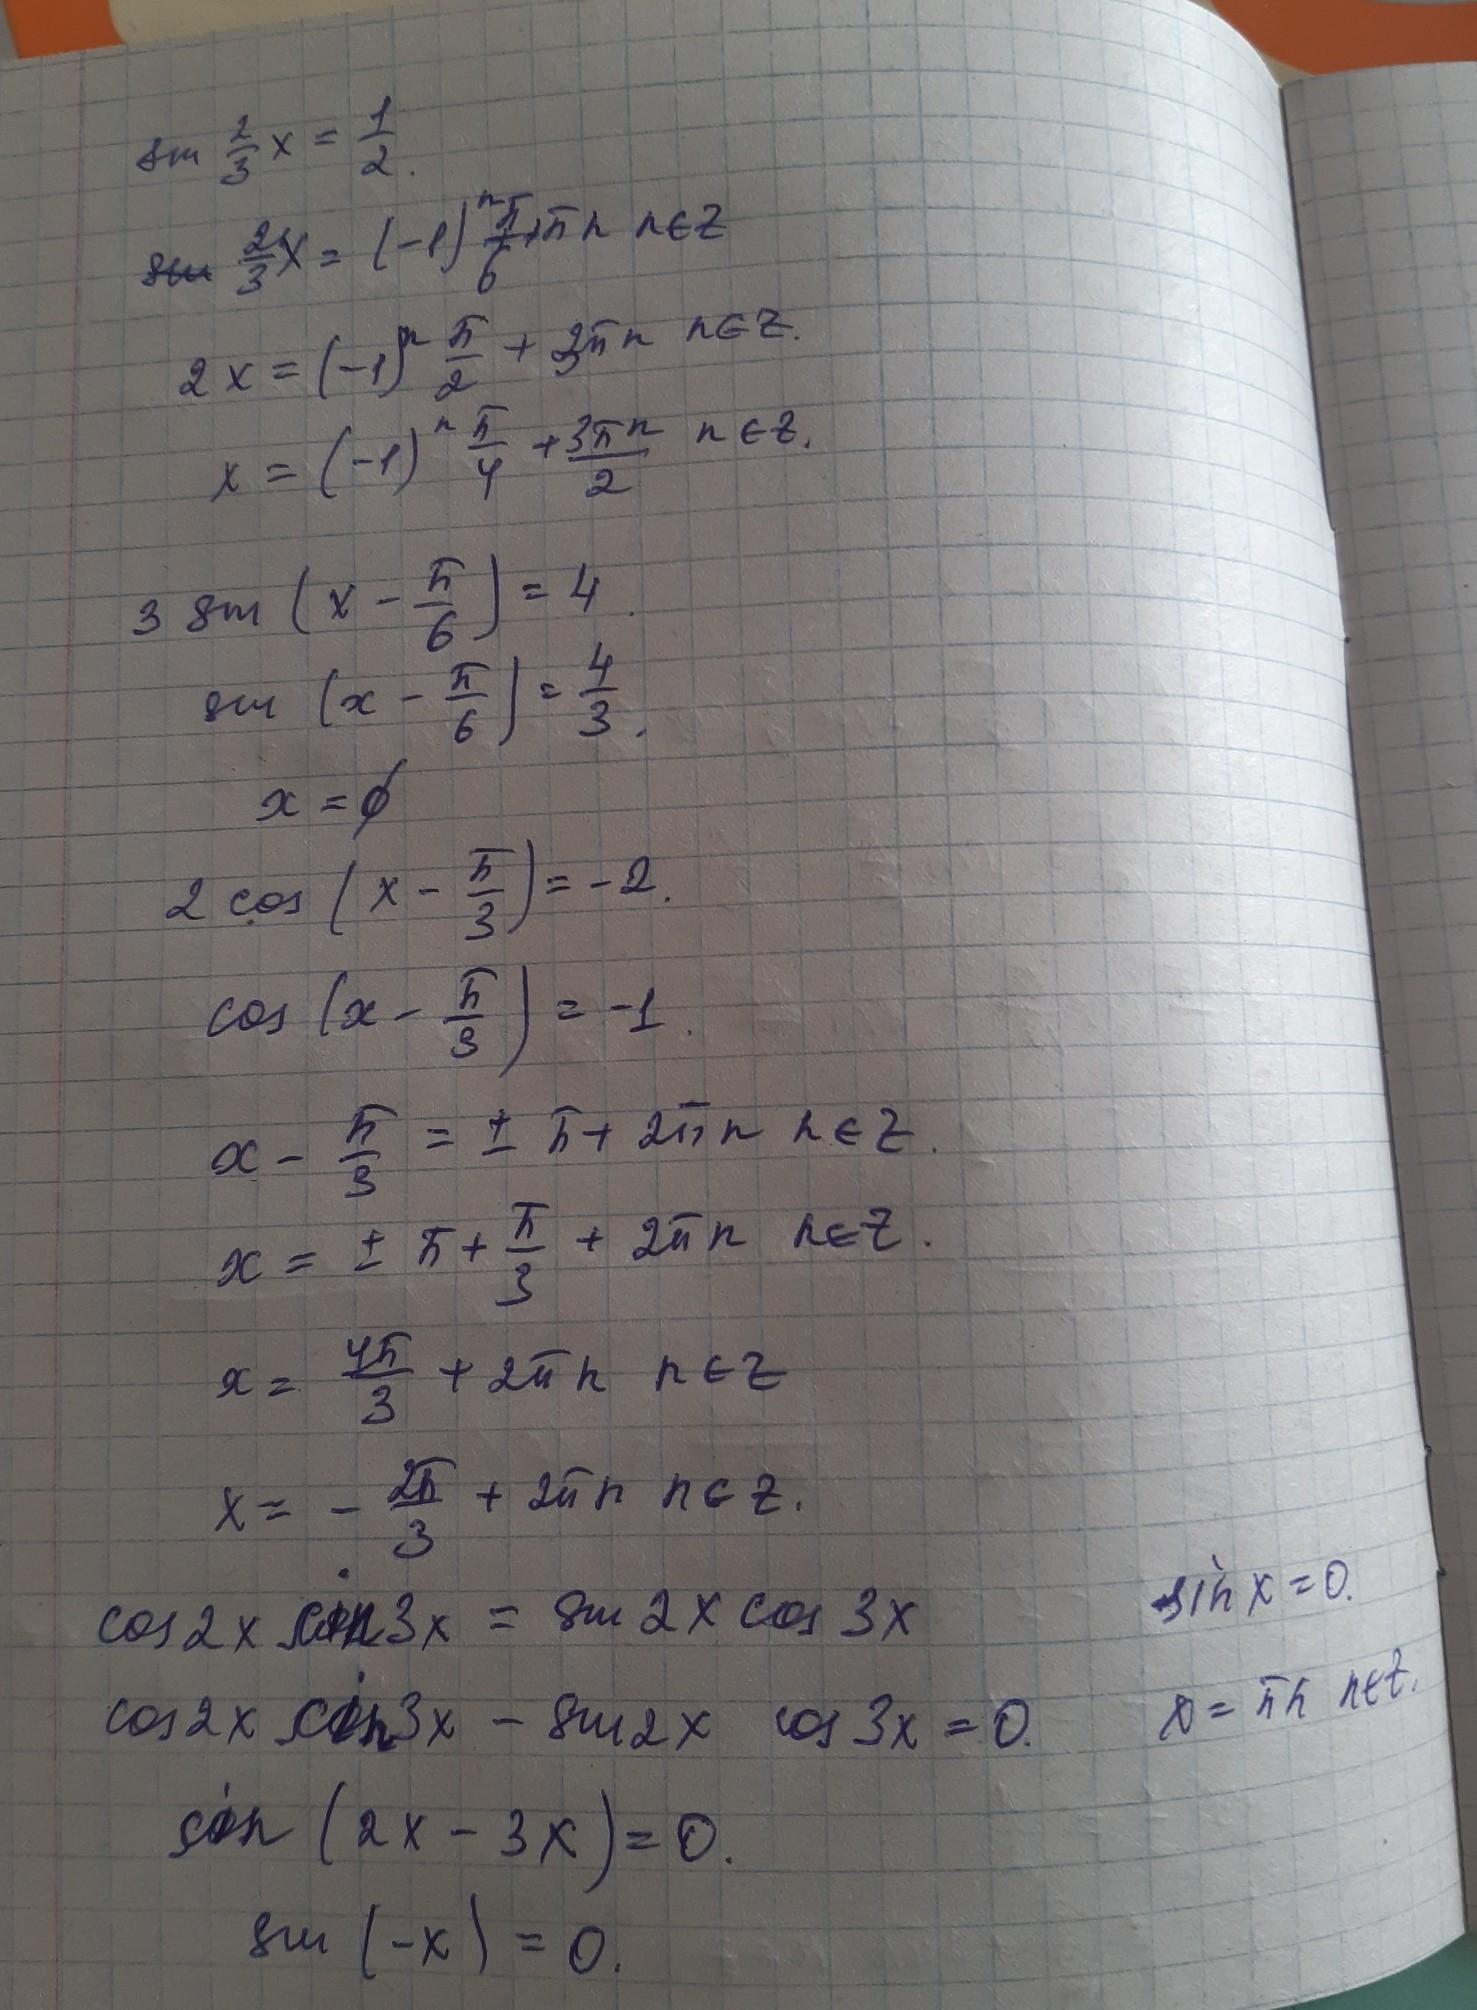 sin 2/3 x = 1/2.
sin 2/3 x = (-1)^n π/6 + πn n∈Z
2x = (-1)^n π/2 + 3πn n∈Z.
x = (-1)^n π/4 + 3πn/2 n∈Z.
3 sin (x - π/6) = 4.
sin (x - π/6) = 4/3.
x = ∅
2 cos (x - π/3) = -2.
cos (x - π/3) = -1.
x - π/3 = ± π + 2πn n∈Z.
x = ± π + π/3 + 2πn n∈Z.
x = 4π/3 + 2πn n∈Z
x = - 2π/3 + 2πn n∈Z.
cos 2x sin 3x = sin 2x cos 3x
cos 2x sin 3x - sin 2x cos 3x = 0.
sin (2x - 3x) = 0.
sin (-x) = 0.
sin x = 0.
x = πn n∈Z.